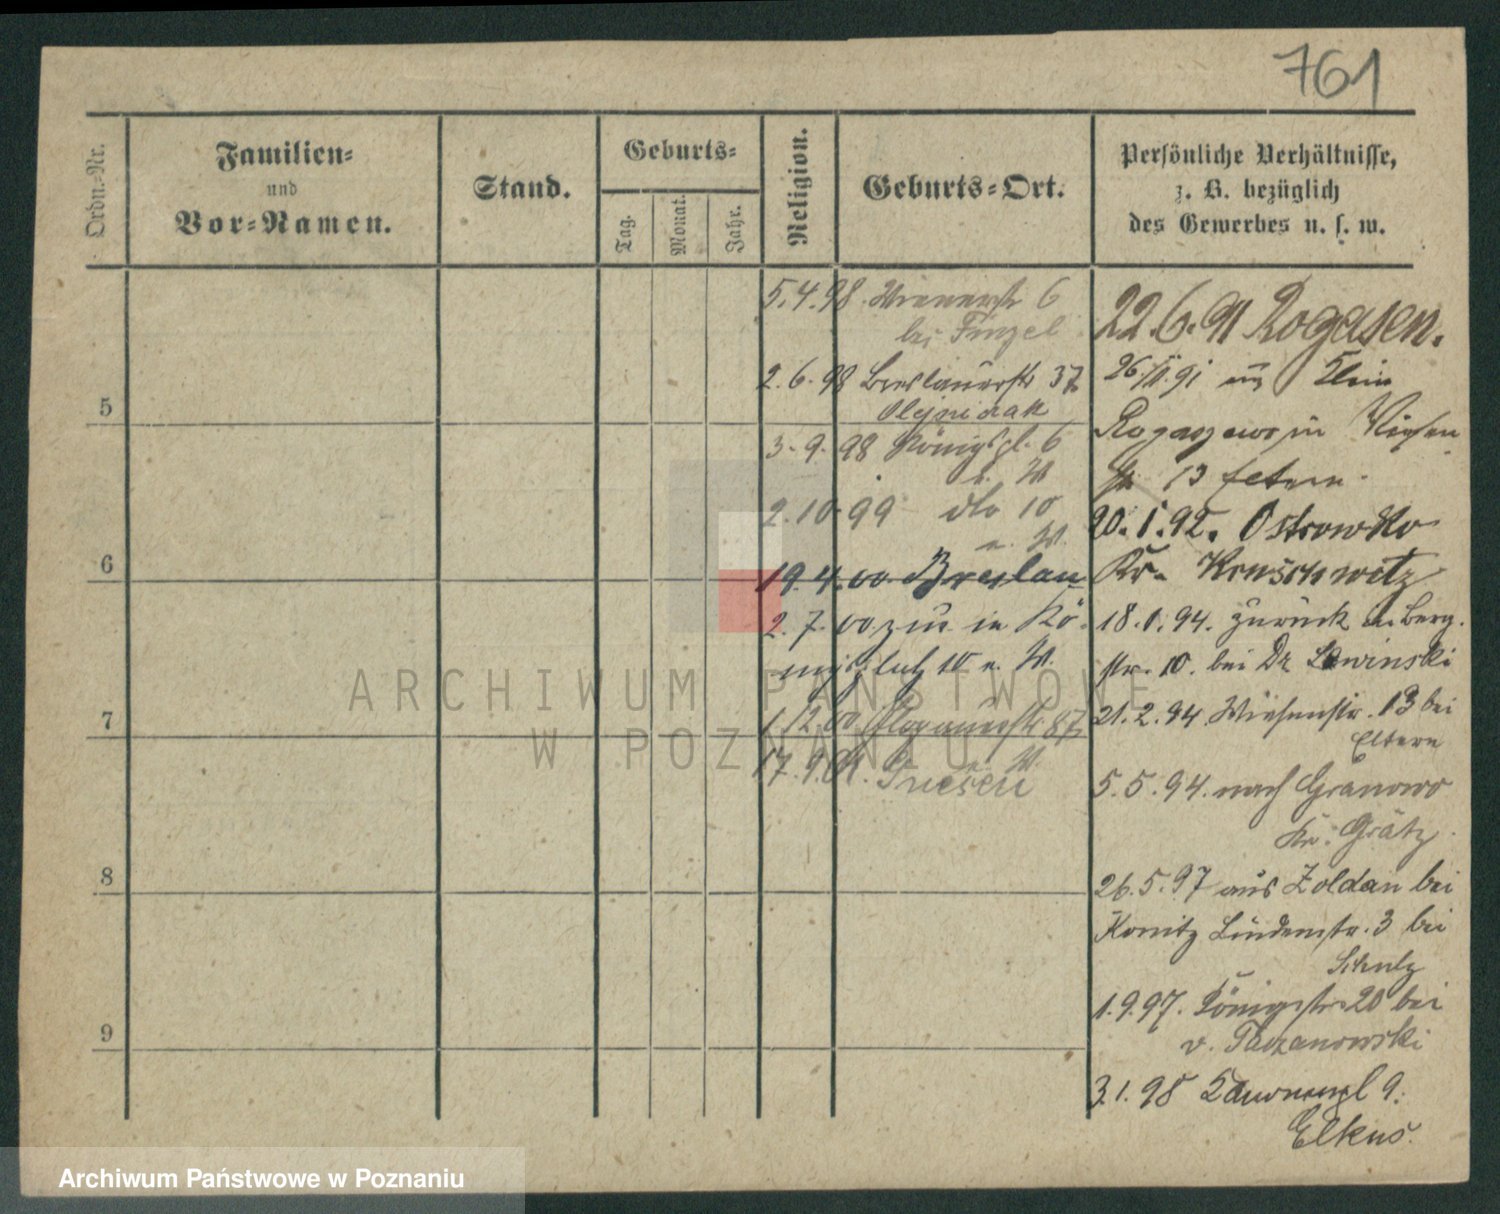 761
Ordn.-Nr.
Familien-
und
Vor-Namen.
Stand.
Geburts-
Tag.
Monat.
Jahr.
Religion.
Geburts-Ort.
Persönliche Verhältnisse,
z. B. bezüglich
des Gewerbes u. s. w.
5
6
7
8
9
5.4.98. 6
bei
2.6.98 Breslauerstr 37
Olejniczak
3.9.98 Königspl. 6
e. W
2.10.99 dto 10
e. W.
19.4.00 Breslau
2.7.00 zur. in Kö-
nigsplatz 10 e. W.
1.12.00. Glogauerstr 87
e. W.
17.9.01. Gnesen
22.6.91 Rogasen.
26./11.91 aus Klein
in Wiesen
str 13 Eltern.
20.1.92. Ostrowko
Kr. Kruschwitz
18.1.94. zurück Berg-
str. 10. bei Dr Lewinski
21.2.94. Wiesenstr. 13 bei
Eltern
5.5.94. nach Granowo
Kr. Grätz
26.5.97 aus Zoldan bei
Konitz Lindenstr. 3 bei
Schulz
1.9.97. Königstr 20 bei
v. Taczanowski
3.1.98 9.
Elkus.
ARCHIWUM PAŃSTWOWE
W POZNANIU
Archiwum Państwowe w Poznaniu